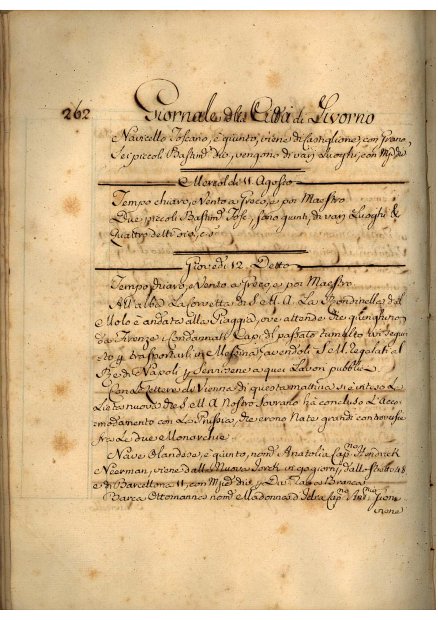 262
Giornale della Città di Livorno
Navicello Toscano, è giunto, viene di Castiglione, con Grano,
Sei piccoli Bastimti. dio., vengono di varj Luoghi, con
Mercol. dì 11. Agosto
Tempo chiaro, e Vento a Greco, e poi Maestro
Due piccoli Bastimti. sono giunti, di varj Luoghi &
Quattro detti
Giovedì 12. Detto
Tempo chiaro, e Vento a Greco, e poi Maestro
All'alba La Corvetta di S. M. A. La Rondinella dal
Molo è andata alla Piaggia, ove attende che giunghino
da Firenze i Condannati Capi di passato tumulto ivi segui
to p. trasportarli in Messina, avendoli S. M. regalati al
Re di Napoli p Servirsene a quei Lavori pubblici.
Con Lettere di Vienna di questa mattina si è inteso La
Lieta nuova che S. M. A. Nostro Sovrano hà concluso L'Acco
modamento con La Prussia, che erono Nate grandi controversie
fra Le due Monarchie.
Nave Olandese, è giunto, nomta. Anatolia Capno. Hendrick
Neerman, viene dalla Nuova Jorck in 90 giorni, dallo Stretto 48
e di Barcellona 11, con
Barca Ottomanna nomta. Madonna d'Idra Capno.
viene